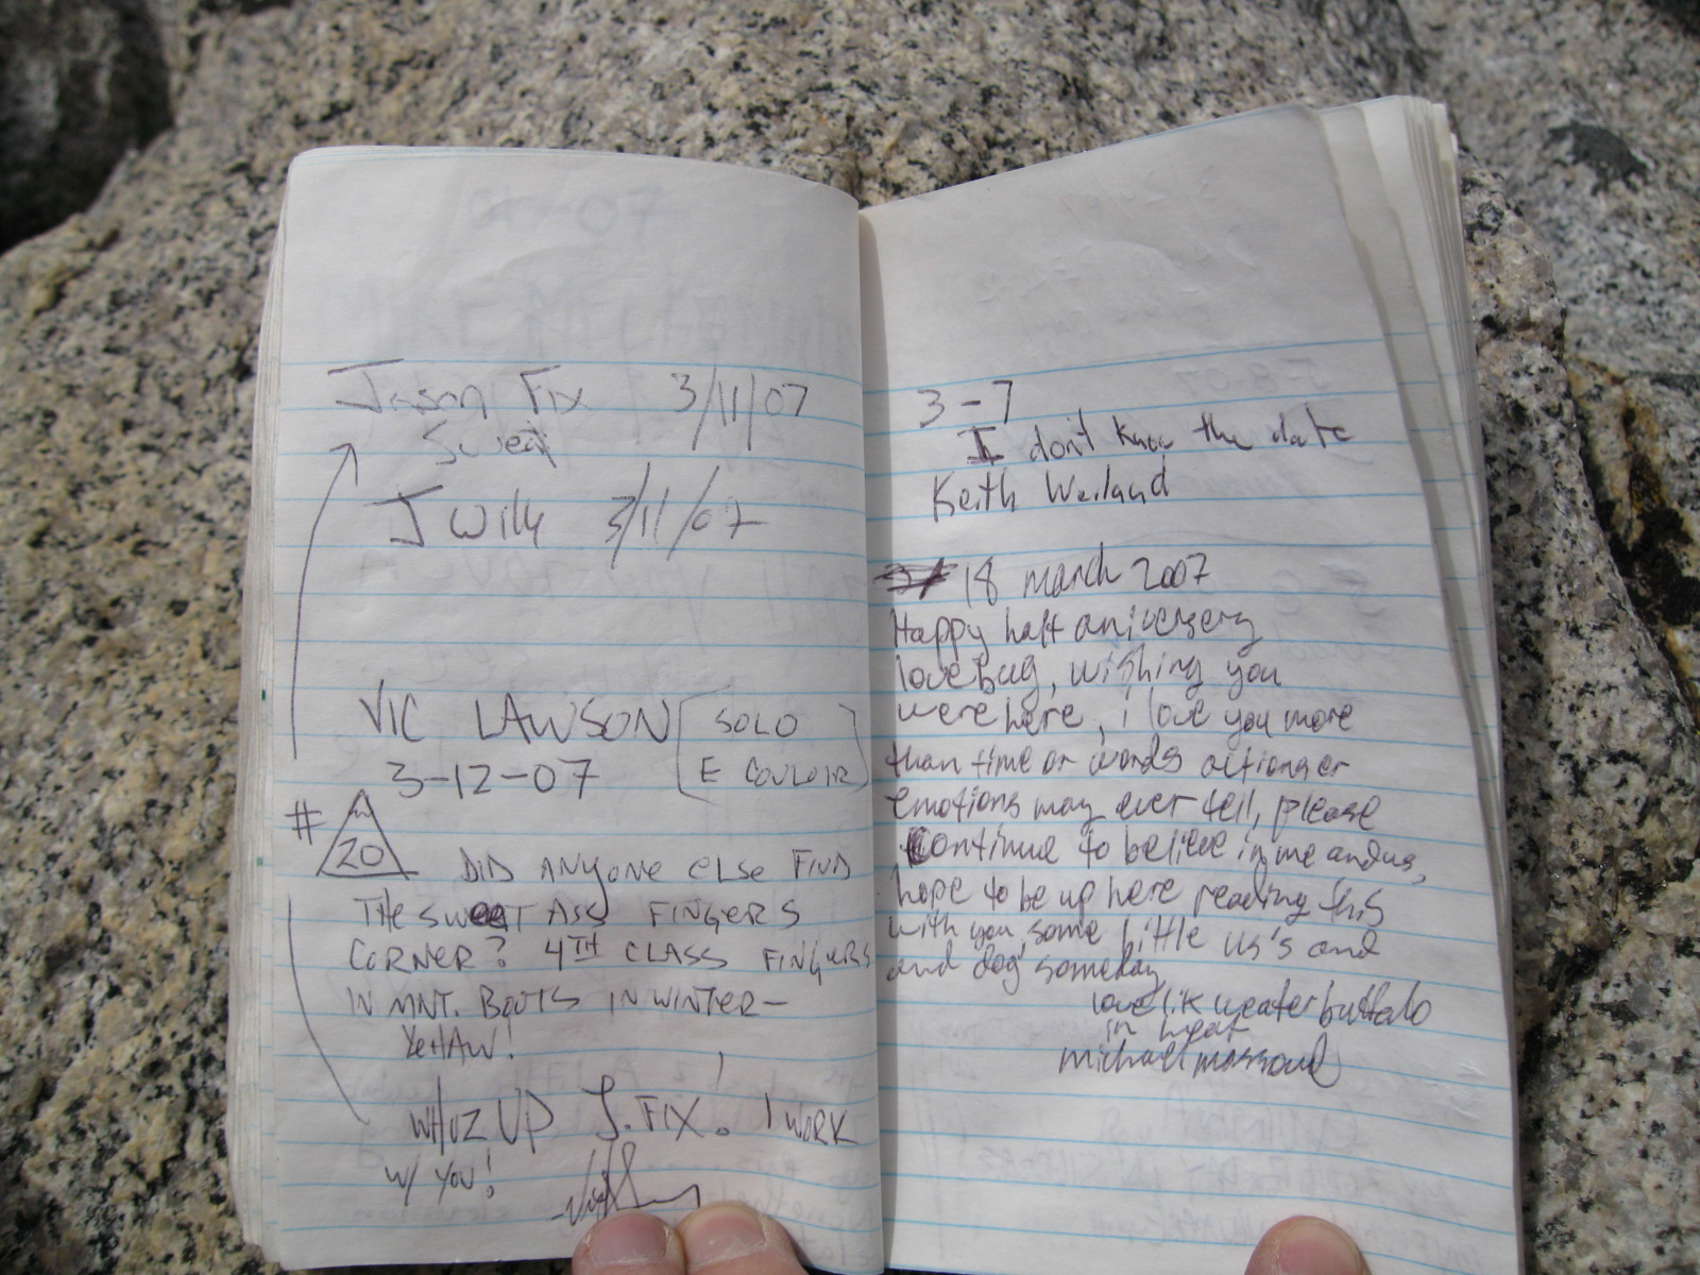 Jason Fix 3/11/07
Sweet
J Willy 3/11/07
VIC LAWSON [SOLO
E COULOIR]
3-12-07
# 20
DID ANYONE ELSE FIND
THE SWEET ASS FINGERS
CORNER? 4TH CLASS FINGERS
IN MNT. BOOTS IN WINTER—
YeHAW!
WHUZ UP J. FIX! I WORK
W/ YOU!
3-7
I don't know the date
Keith Weiland
18 march 2007
Happy half aniversery
lovebug, wishing you
were here, i love you more
than time or words actions or
emotions may ever tell, please
Continue to believe in me and us,
hope to be up here reading this
with you, some little us's and
and dog someday
love lik water buffalo
in heat
michael massoud